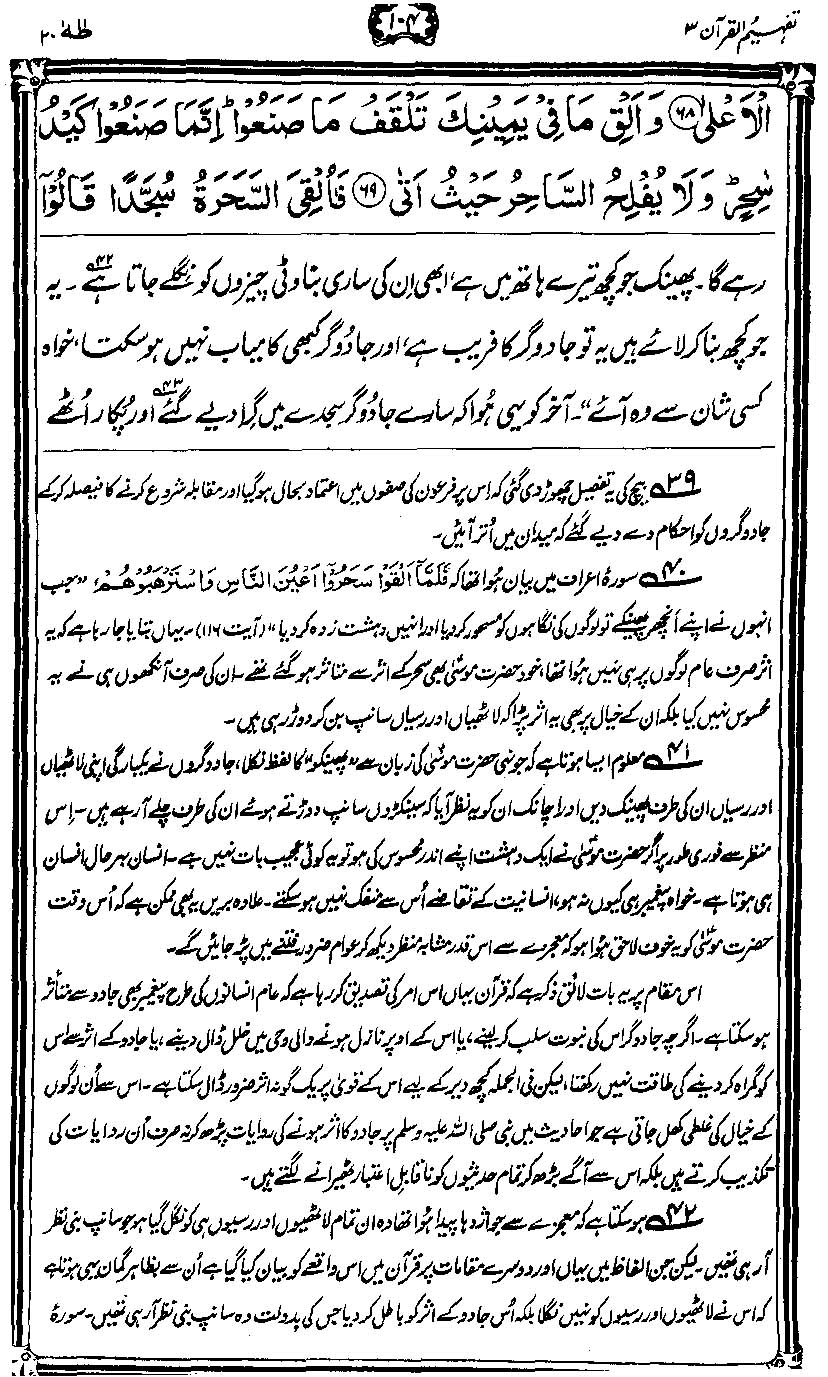 تفہیم القرآن ۳
۱۰۴
طٰہٰ ۲۰
الْاَعْلٰى ﴿۶۸﴾ وَاَلْقِ مَا فِيْ يَمِيْنِكَ تَلْقَفْ مَا صَنَعُوْا ؕ اِنَّمَا صَنَعُوْا كَيْدُ
سٰحِرٍ ؕ وَلَا يُفْلِحُ السَّاحِرُ حَيْثُ اَتٰى ﴿۶۹﴾ فَاُلْقِيَ السَّحَرَةُ سُجَّدًا قَالُوْٓا
رہے گا۔ پھینک جو کچھ تیرے ہاتھ میں ہے، ابھی اِن کی ساری بناوٹی چیزوں کو نگلے جاتا ہے۴۲۔ یہ
جو کچھ بنا کر لائے ہیں یہ تو جادوگر کا فریب ہے، اور جادُوگر کبھی کامیاب نہیں ہو سکتا، خواہ
کسی شان سے وہ آئے“۔ آخر کو یہی ہُوا کہ سارے جادُوگر سجدے میں گرا دیے گئے۴۳ اور پُکار اُٹھے
۳۹؎ بیچ کی یہ تفصیل چھوڑ دی گئی کہ اس پر فرعون کی صفوں میں اعتماد بحال ہو گیا اور مقابلہ شروع کرنے کا فیصلہ کر کے
جادوگروں کو احکام دے دیے گئے کہ میدان میں اُتر آئیں۔
۴۰؎ سورۂ اعراف میں بیان ہُوا تھا کہ فَلَمَّآ اَلْقَوْا سَحَرُوْٓا اَعْيُنَ النَّاسِ وَاسْتَرْهَبُوْهُمْ، ”جب
انہوں نے اپنے اَنچھر پھینکے تو لوگوں کی نگاہوں کو مسحور کر دیا اور انہیں دہشت زدہ کر دیا“ (آیت ۱۱۶)۔ یہاں بتایا جا رہا ہے کہ یہ
اثر صرف عام لوگوں پر ہی نہیں ہُوا تھا، خود حضرت موسیٰؑ بھی سحر کے اثر سے متاثر ہو گئے تھے۔ ان کی صرف آنکھوں ہی نے یہ
محسوس نہیں کیا بلکہ ان کے خیال پر بھی یہ اثر پڑا کہ لاٹھیاں اور رسیاں سانپ بن کر دوڑ رہی ہیں۔
۴۱؎ معلوم ایسا ہوتا ہے کہ جونہی حضرت موسیٰؑ کی زبان سے ”پھینکو“ کا لفظ نکلا، جادوگروں نے یکبارگی اپنی لاٹھیاں
اور رسیاں ان کی طرف پھینک دیں اور اچانک ان کو یہ نظر آیا کہ سینکڑوں سانپ دوڑتے ہوئے ان کی طرف چلے آرہے ہیں۔ اِس
منظر سے فوری طور پر اگر حضرت موسیٰؑ نے ایک دہشت اپنے اندر محسوس کی ہو تو یہ کوئی عجیب بات نہیں ہے۔ انسان بہرحال انسان
ہی ہوتا ہے۔ خواہ پیغمبر ہی کیوں نہ ہو، انسانیت کے تقاضے اُس سے منفک نہیں ہو سکتے۔ علاوہ بریں یہ بھی ممکن ہے کہ اُس وقت
حضرت موسیٰؑ کو یہ خوف لاحق ہُوا ہو کہ معجزے سے اس قدر مشابہ منظر دیکھ کر عوام ضرور فتنے میں پڑ جائیں گے۔
اس مقام پر یہ بات لائق ذکر ہے کہ قرآن یہاں اس امر کی تصدیق کر رہا ہے کہ عام انسانوں کی طرح پیغمبر بھی جادو سے متأثر
ہو سکتا ہے۔ اگرچہ جادوگر اس کی نبوت سلب کر لینے، یا اس کے اوپر نازل ہونے والی وحی میں خلل ڈال دینے، یا جادو کے اثر سے اس
کو گمراہ کر دینے کی طاقت نہیں رکھتا، لیکن فی الجملہ کچھ دیر کے لیے اس کے قویٰ پر یک گونہ اثر ضرور ڈال سکتا ہے۔ اس سے اُن لوگوں
کے خیال کی غلطی کھل جاتی ہے جو احادیث میں نبی صلی اللہ علیہ وسلم پر جادو کا اثر ہونے کی روایات پڑھ کر نہ صرف اُن روایات کی
تکذیب کرتے ہیں بلکہ اس سے آگے بڑھ کر تمام حدیثوں کو ناقابلِ اعتبار ٹھیرانے لگتے ہیں۔
۴۲؎ ہو سکتا ہے کہ معجزے سے جو اژدہا پیدا ہُوا تھا وہ ان تمام لاٹھیوں اور رسیوں ہی کو نگل گیا ہو جو سانپ بنی نظر
آرہی تھیں۔ لیکن جن الفاظ میں یہاں اور دوسرے مقامات پر قرآن میں اس واقعے کو بیان کیا گیا ہے اُن سے بظاہر گمان یہی ہوتا ہے
کہ اس نے لاٹھیوں اور رسیوں کو نہیں نگلا بلکہ اُس جادو کے اثر کو باطل کر دیا جس کی بدولت وہ سانپ بنی نظر آرہی تھیں۔ سورۂ